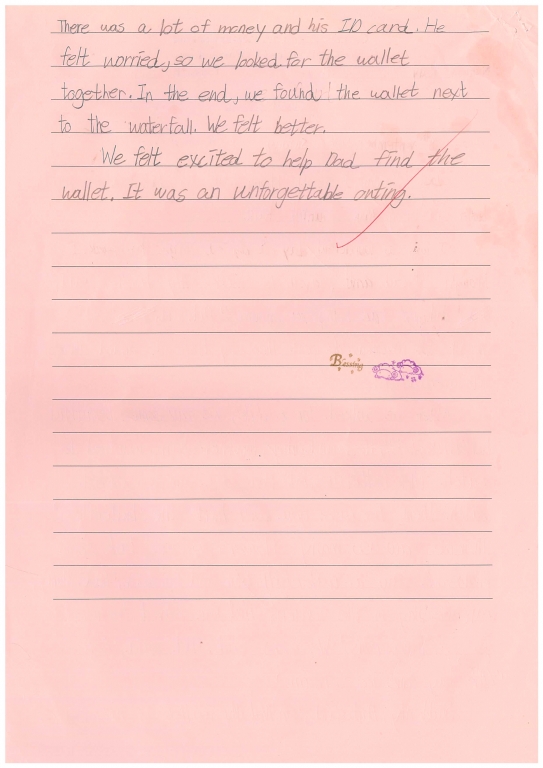 There was a lot of money and his ID card. He
felt worried, so we looked for the wallet
together. In the end, we found the wallet next
to the waterfall. We felt better.
We felt excited to help Dad find the
wallet. It was an unforgettable outing.